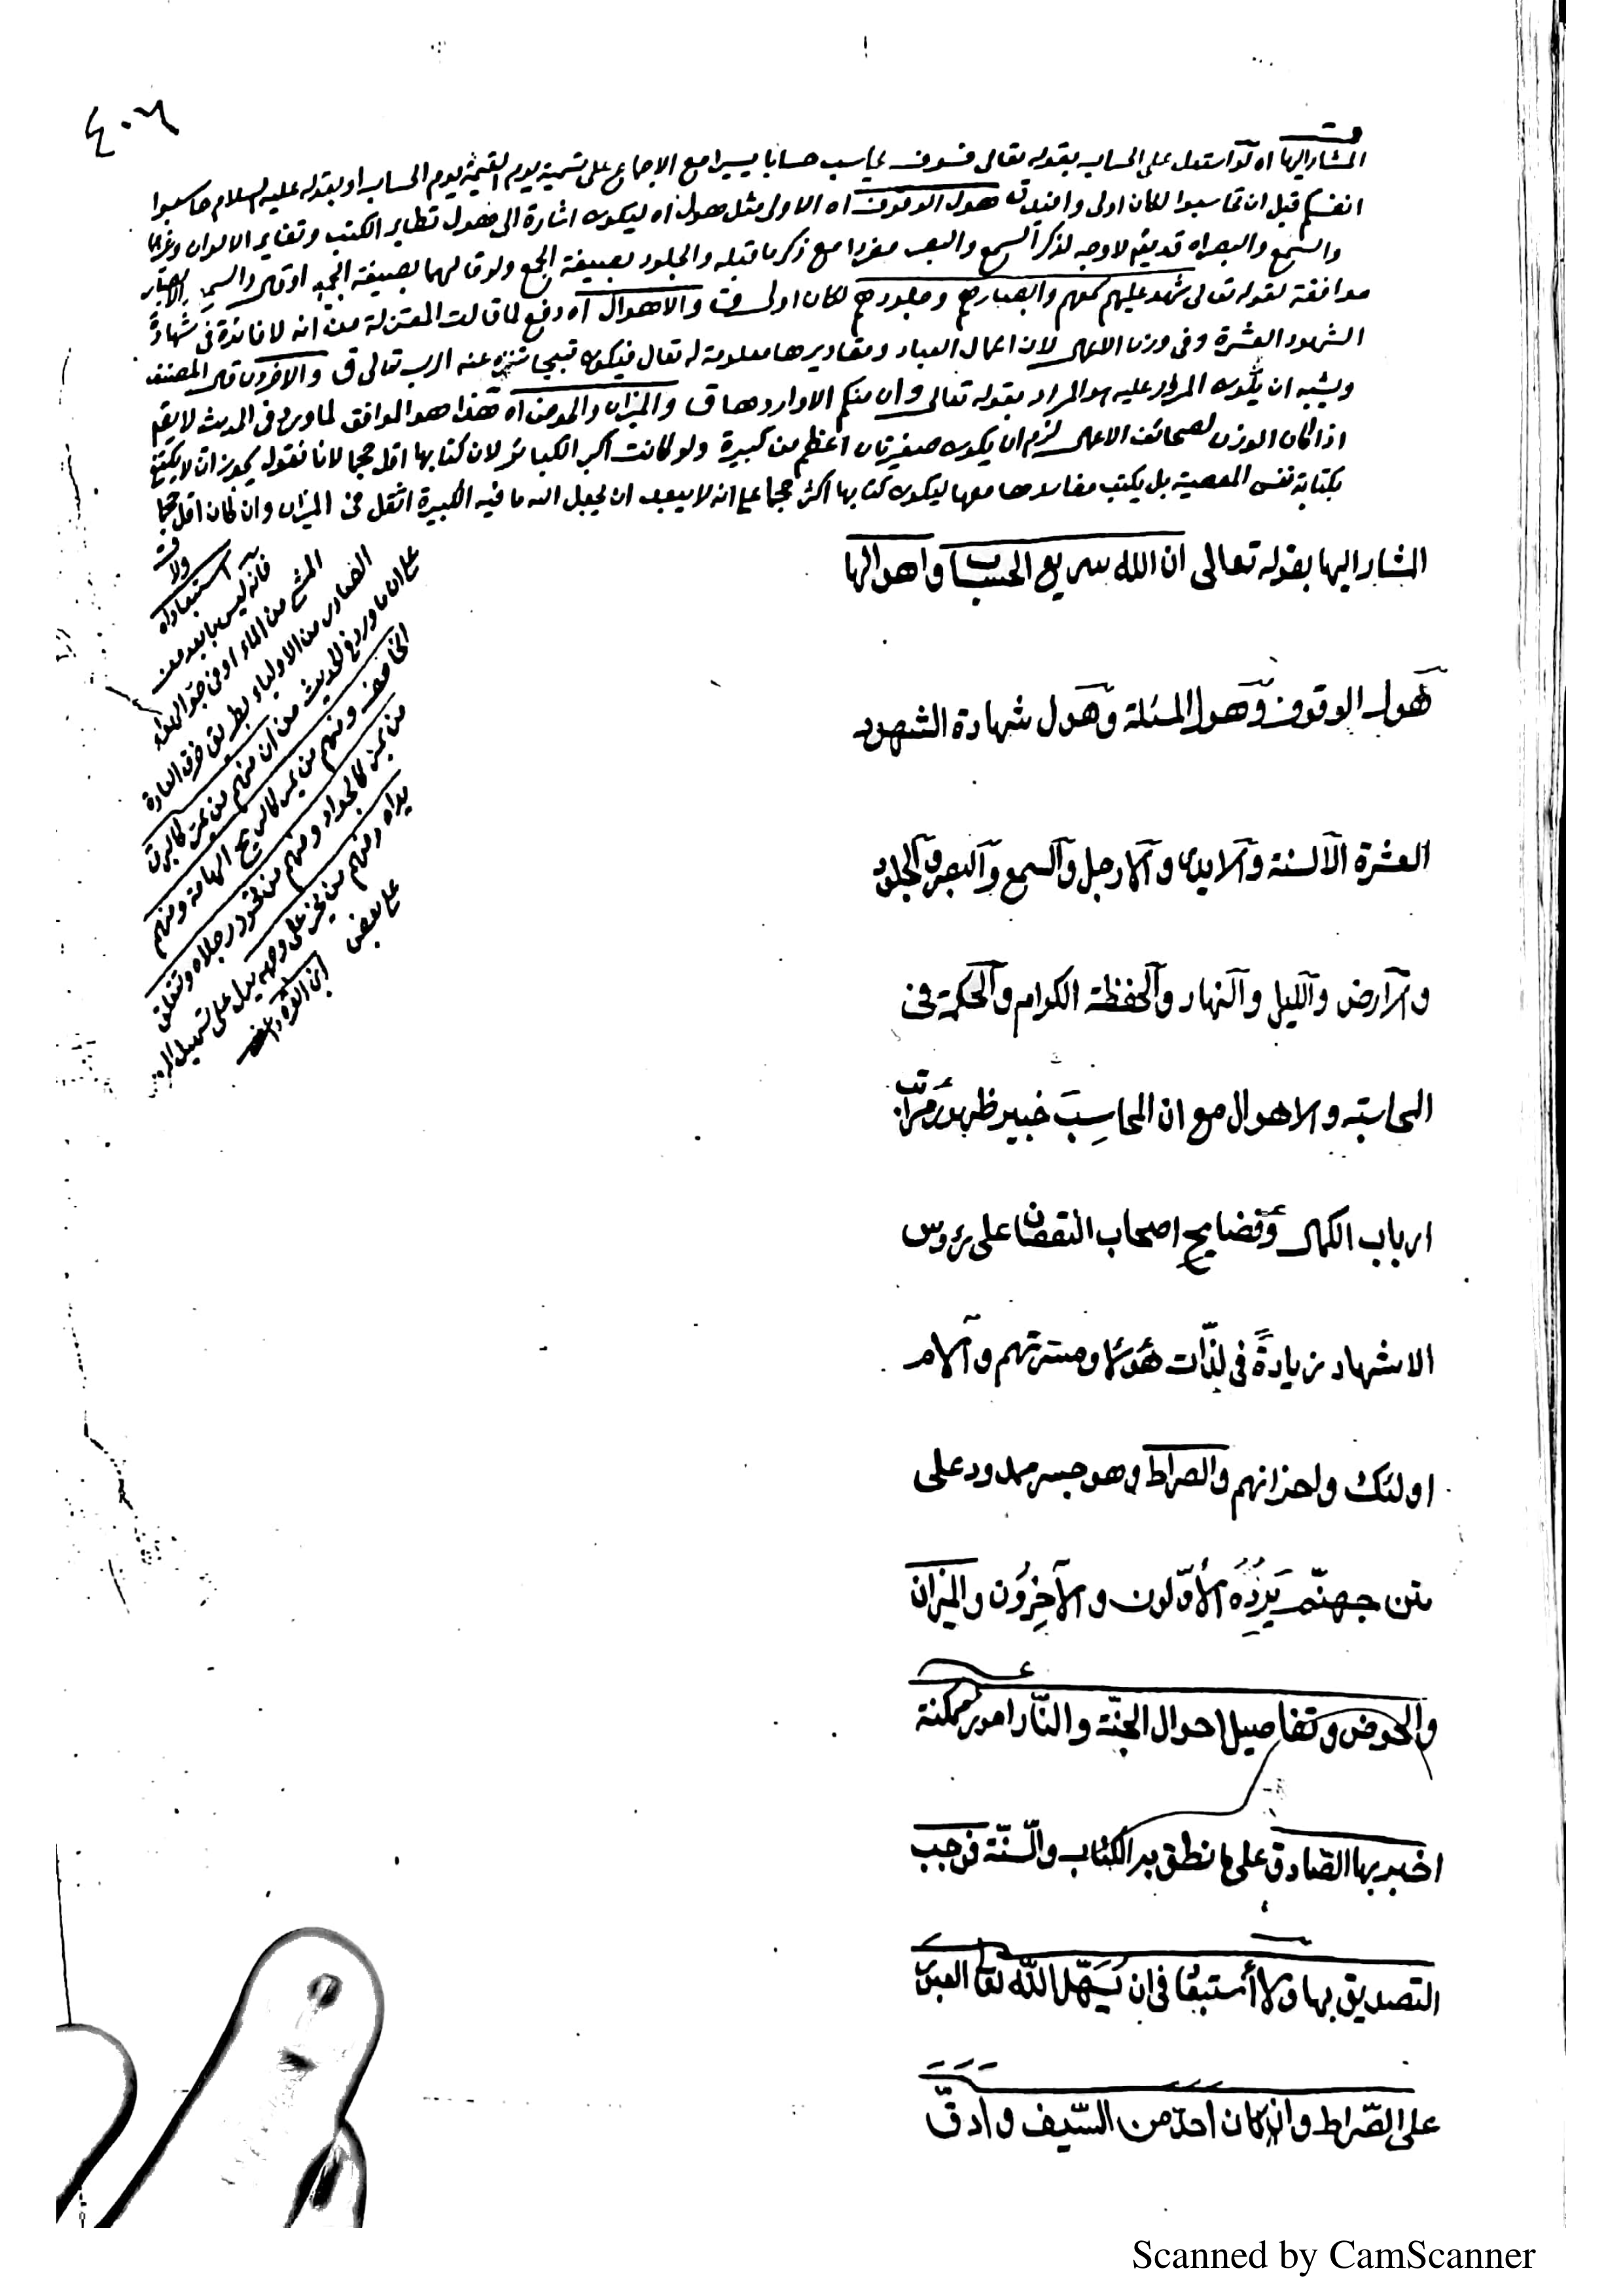 ٤٠٦
المشار اليها اه لو استدل على الحساب بقوله تعالى فسوف يحاسب حسابا يسيرا مع الاجماع على تسمية يوم القيمة يوم الحساب او بقوله عليه السلام حاسبوا
انفسكم قبل ان تحاسبوا لكان اولى وافيد ق هول الوقوف اه الاولى مثل هول اه ليكون اشارة الى هول تطاير الكتب وتغاير الالوان وغيرها
والسمع والبصر اه لاوجه لذكر السمع والبصر مفردا مع ذكر ما قبله والجلود بصيغة الجمع ولو قالهما بصيغة الجمع
موافقة لقوله تعالى شهد عليهم سمعهم وابصارهم وجلودهم لكان اولى ق والاهوال اه دفع لما قالت المعتزلة من انه لا فائدة في شهادة
الشهود العشرة وفى وزن الاعمال لان اعمال العباد ومقاديرها معلومة له تعالى فيكون قبيحا تنزه عنه الرب تعالى ق والآخرون قال المصنف
ويشبه ان يكون المرور عليه هو المراد بقوله تعالى وان منكم الا واردها ق والميزان والحوض اه هذا هو الموافق لما ورد فى الحديث لا يقم
اذا كان الوزن لصحائف الاعمال لزم ان يكون صغيرتان اعظم من كبيرة ولو كانت اكبر الكبائر لان كتابها اقل حجما لانا نقول يجوز ان لا يكتفى
بكتابة نفس المعصية بل يكتب مفاسدها معها ليكون كتابها اكثر حجما على انه لا يبعد ان يجعل الله ما فيه الكبيرة اثقل فى الميزان وان كان اقل حجما
ولا
استبعاد اه
فانه ليس بابعد من
المشى من الماء او فى جو الهواء
الصادر من الاولياء بطريق خرق العادة
على ان ما ورد فى الحديث من ان منهم من يمر كالبرق
الخاطف ومنهم من يمر كالريح الهابة ومنهم
من يمر كالجواد ومنهم من تخور رجلاه وتتعلق
يداه ومنهم من يخر على وجهه يدل على تسهيل
على بعض
ابن القره داغى
المشار اليها بقوله تعالى ان الله سريع الحساب واهوالها
هول الوقوف وهول المسئلة وهول شهادة الشهود
العشرة الالسنة والايدى والارجل والسمع والبصر والجلود
والارض والليل والنهار والحفظة الكرام والحكمة فى
المحاسبة والاهوال مع ان المحاسِبَ خبير ظهور مراتب
ارباب الكمال وفضايح اصحاب النقصان على رؤس
الاشهاد زيادةً فى لذّات هؤلاء ومسرّتهم والام
اولئك واحزانهم والصراط وهو جسر ممدود على
متن جهنّم يَرِدُهُ الأوّلون والآخِرُون والميزان
والحوض وتفاصيل احوال الجنّة والنّار امور ممكنة
اخبر بها الصادق على ما نطق به الكتاب والسّنّة فوجب
التصديق بها ولا استبعاد فى ان يُسَهّل الله تعالى العبور
على الصّراط وان كان احدّ من السّيف وادقّ
Scanned by CamScanner